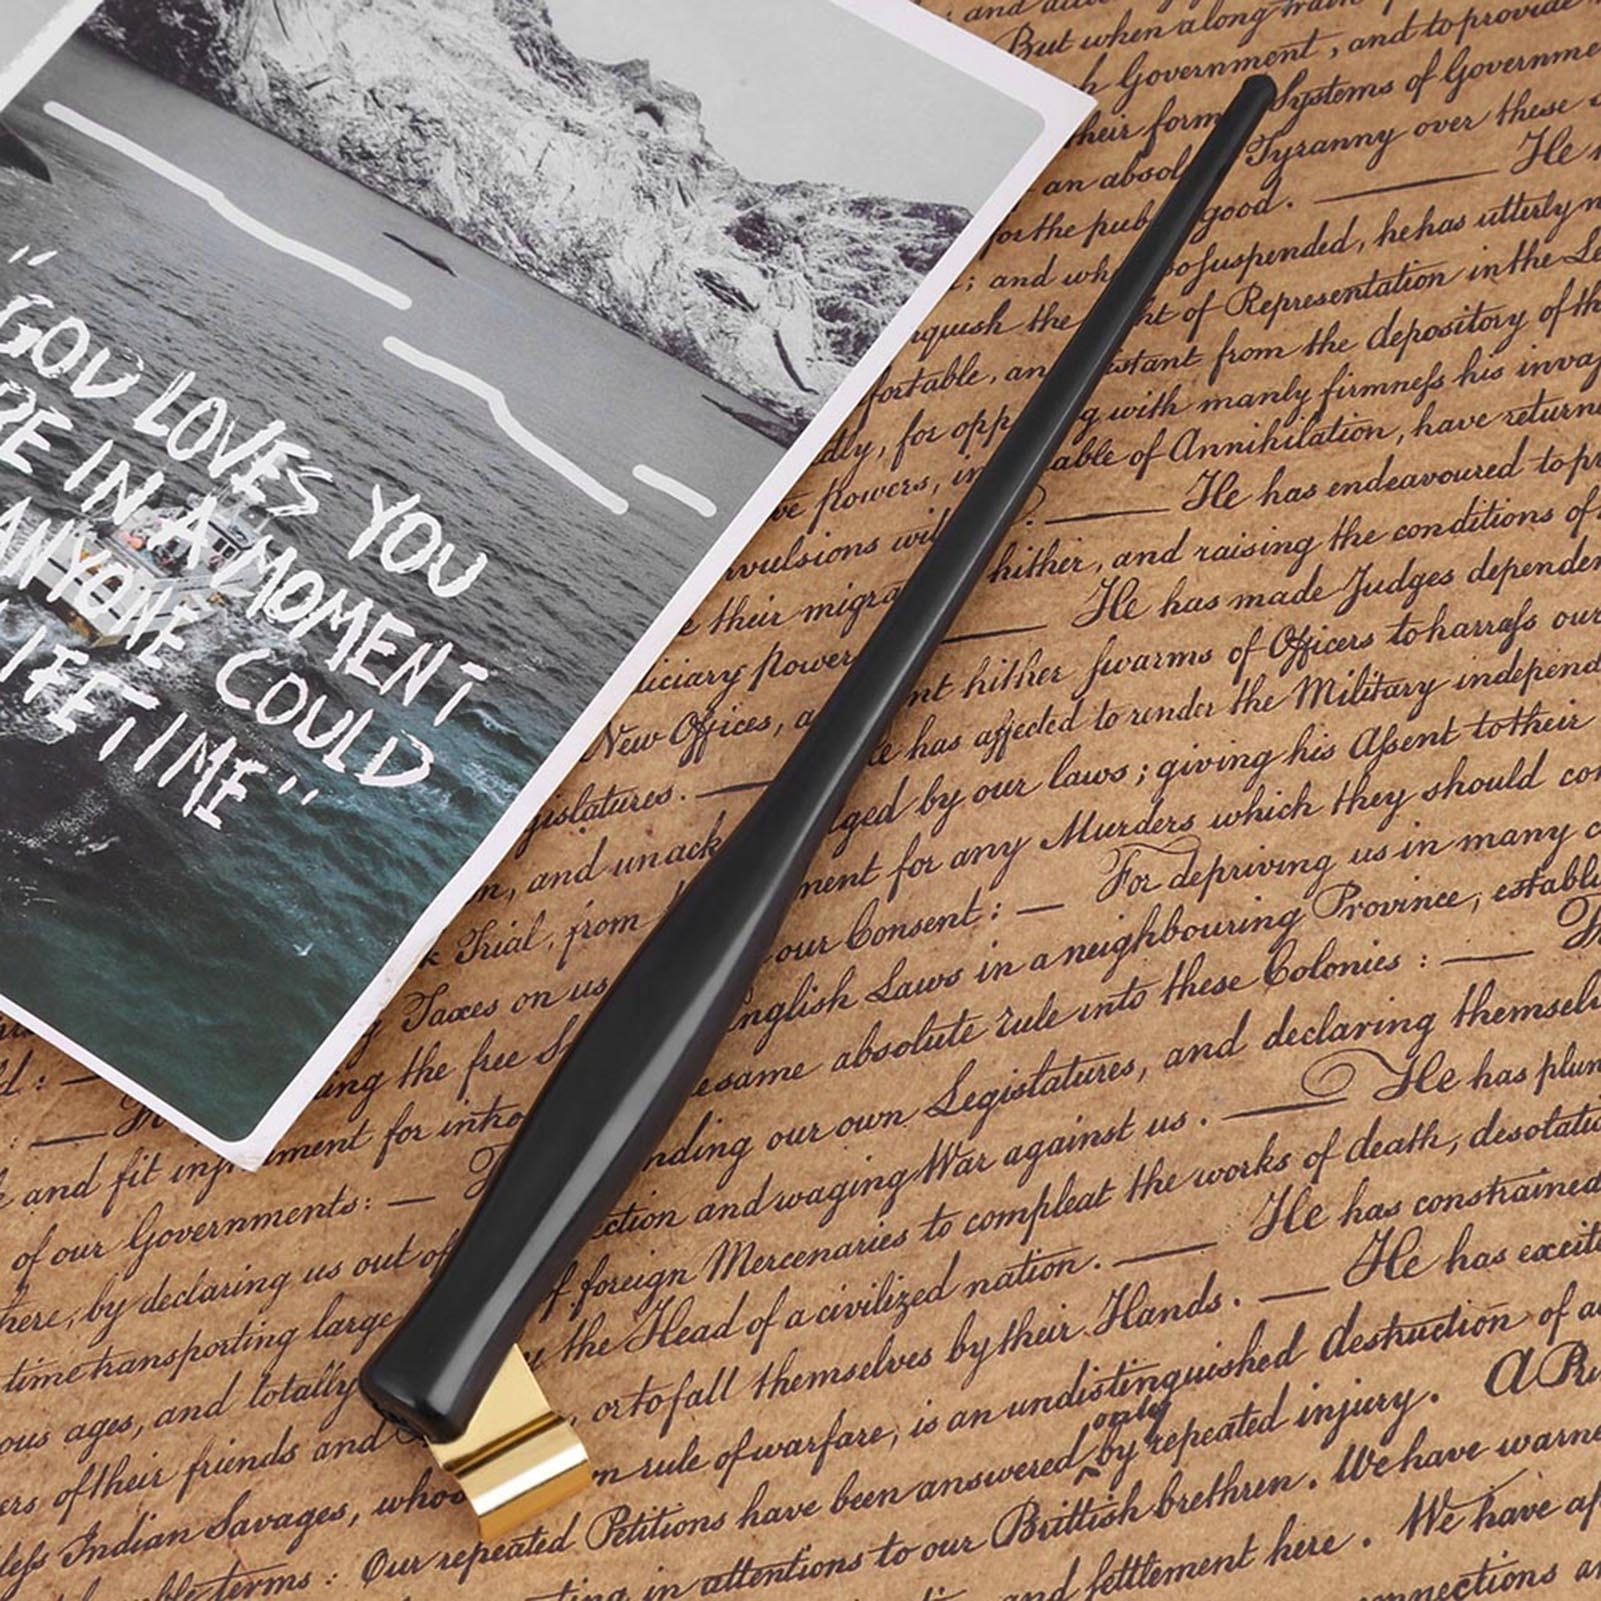 "GOD LOVES YOU
RE IN A MOMENT
ANYONE COULD
LIFETIME"
and
But when along train
Government, and to provide
their form Systems of Governme
an absol Tyranny over these
for the pub good. He
; and wh so suspended, he has utterly n
quish the ht of Representation in the Le
fortable, an istant from the depository of th
dly, for opp g with manly firmness his inva
ve powers, in able of Annihilation, have return
nvulsions wit . He has endeavoured to pr
their migra hither, and raising the conditions of
diciary power He has made Judges dependen
New Offices, a nt hither swarms of Officers to harrass our
e has affected to render the Military independ
gislatures. ged by our laws; giving his Assent to their
n, and unack ment for any Murders which they should co
k Trial, from our Consent: — For depriving us in many c
g Taxes on us nglish Laws in a neighbouring Province, establi
ing the free S esame absolute rule into these Colonies: —
ment for intro nding our own Legislatures, and declaring themsel
and fit ction and waging War against us. He has plun
of our Governments: — f foreign Mercenaries to compleat the works of death, desolati
here, by declaring us out of the Head of a civilized nation. He has constrained
time transporting large or to fall themselves by their Hands. — He has excit
ous ages, and totally n rule of warfare, is an undistinguished destruction of a
ers of their friends and only
less Indian Savages, who Our repeated Petitions have been answered by repeated injury. A Pri
ble terms: in attentions to our Brittish brethren. We have warne
and settlement here. We have ap
connections a